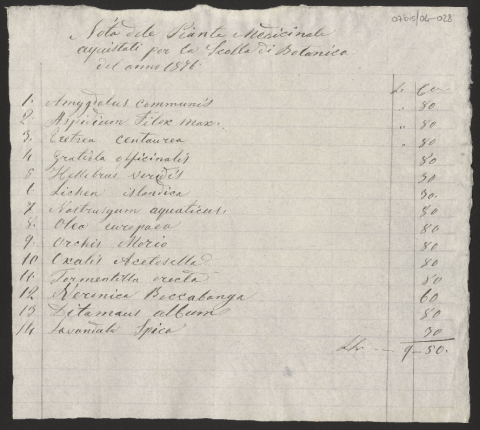 07b15/06-028
Nota dele Piante Medicinale
aquistati per la Scolla di Botanica
del anno 1876.
L. Cn
1. Amygdolus communis „ 80
2. Aspidium Filex max. „ 80
3. Eretrea centaurea „ 80
4. Gratiola officinalis 80
5. Hellebrus verdis 30
6. Lichen islandica 30.
7. Nastrusgum aquaticus. 80
8. Oleo europaea 80
9. Orchis Morio 80
10. Oxalis Acetosella 80
11. Tormentilla erecta 80
12. Veronica Beccabonga 60
13. Ditamaus album 80
14. Lavandula Spica 30
9-80.